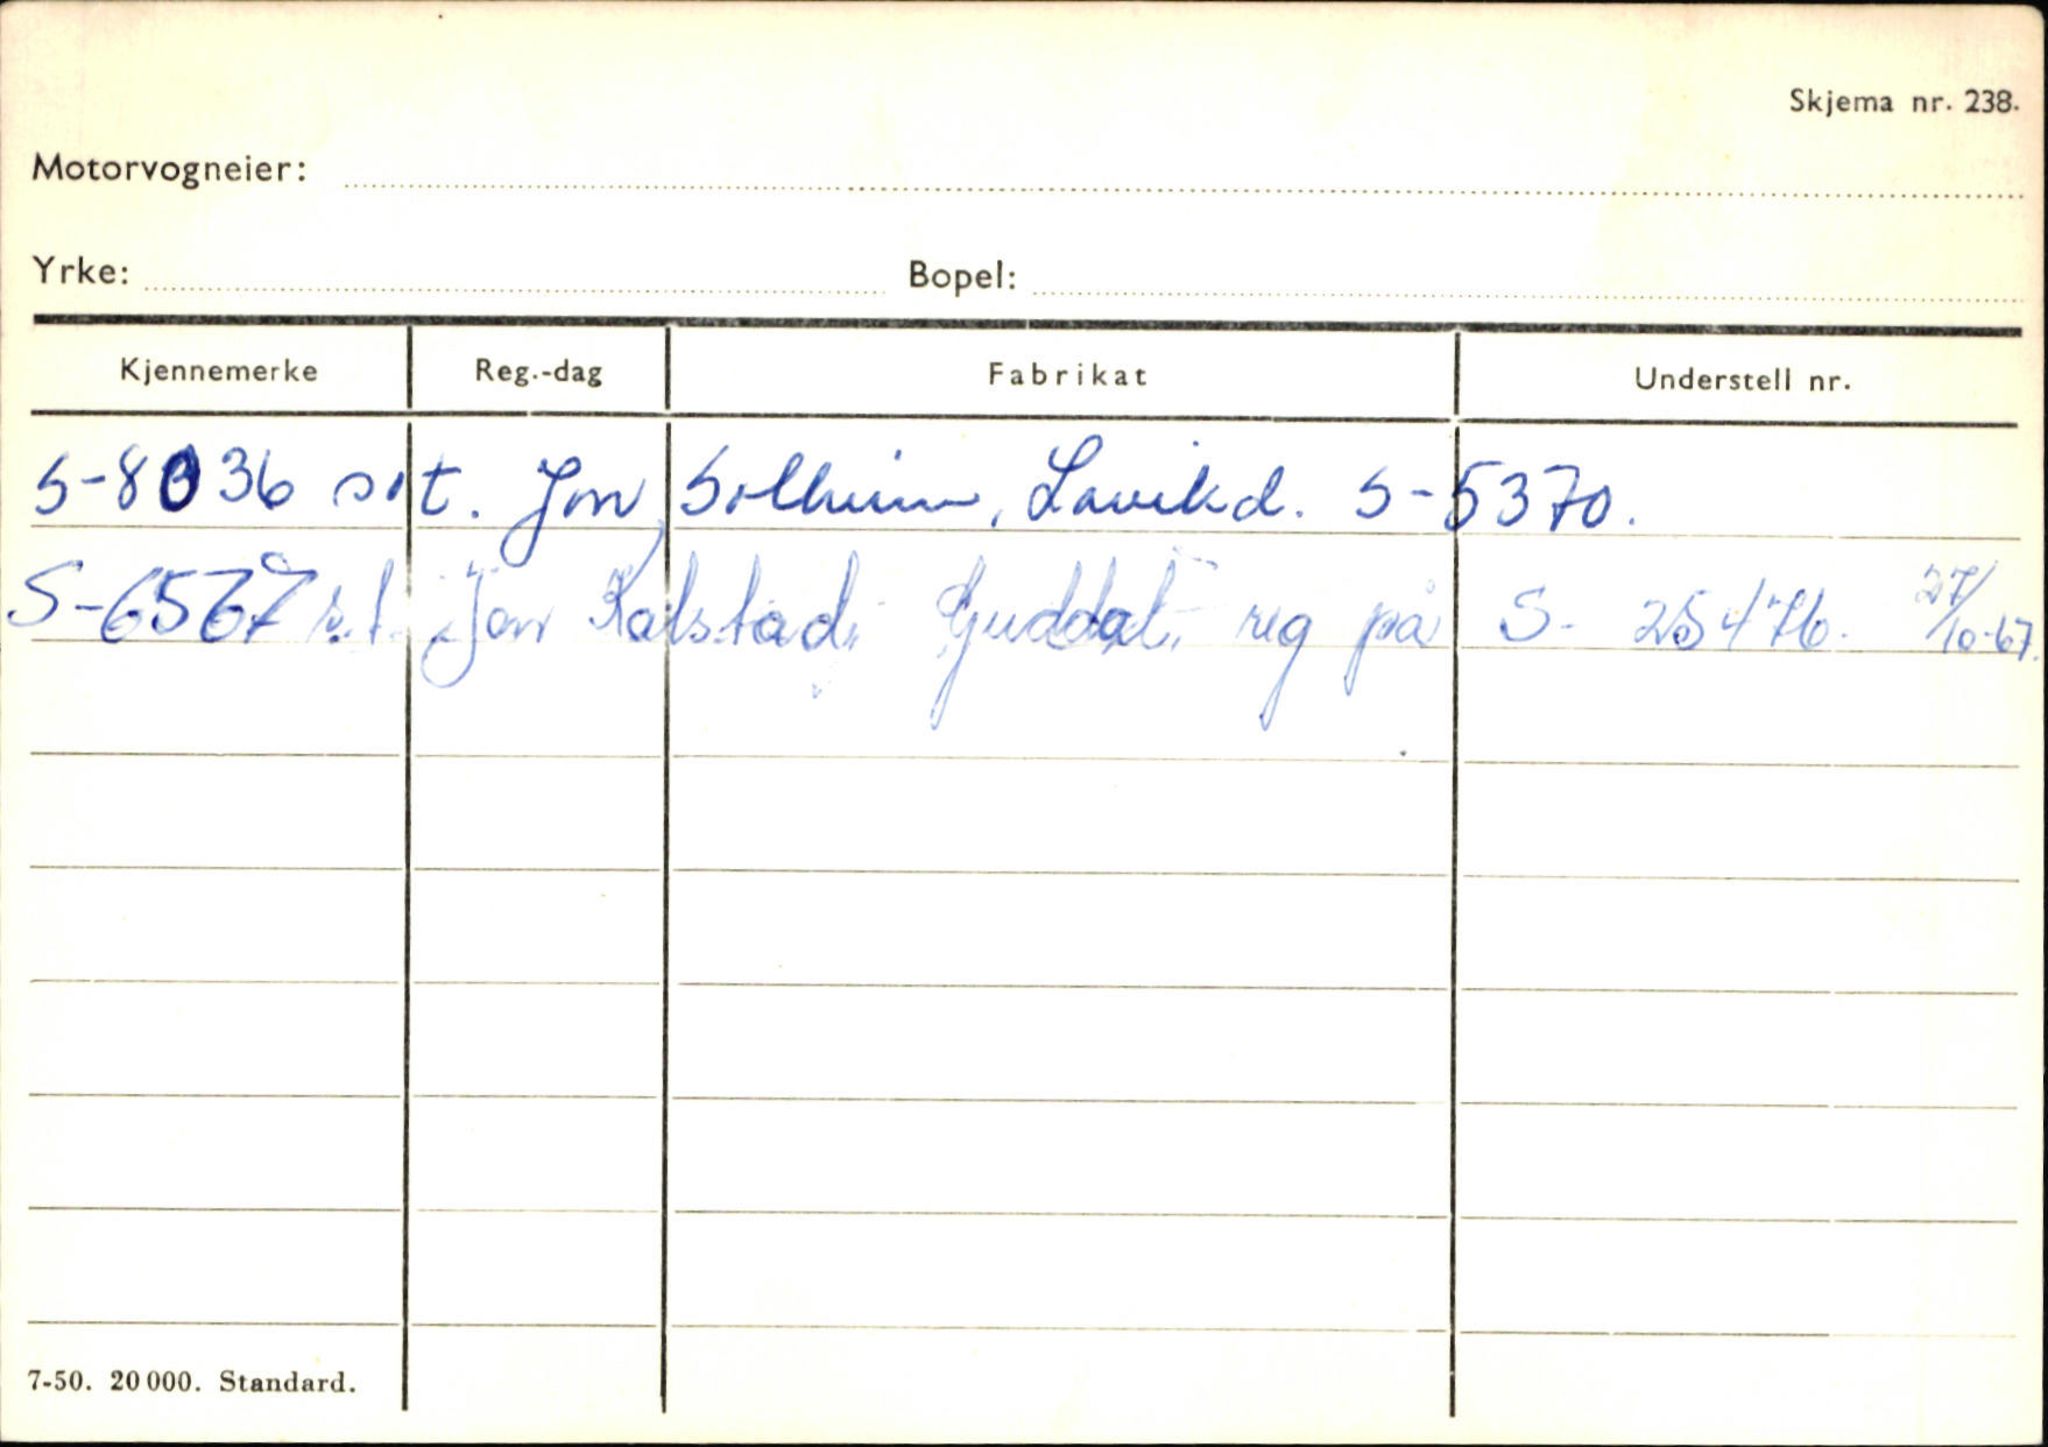 Skjema nr. 238.
Motorvogneier:
Yrke: Bopel:
Kjennemerke Reg.-dag Fabrikat Understell nr.
S-8036 s.t. Jon Solheim, Lavikd. S-5370.
S-6567 s.t. Jon Kalstad, Guddal. reg på S- 25476. 27/10-67.
7-50. 20 000. Standard.